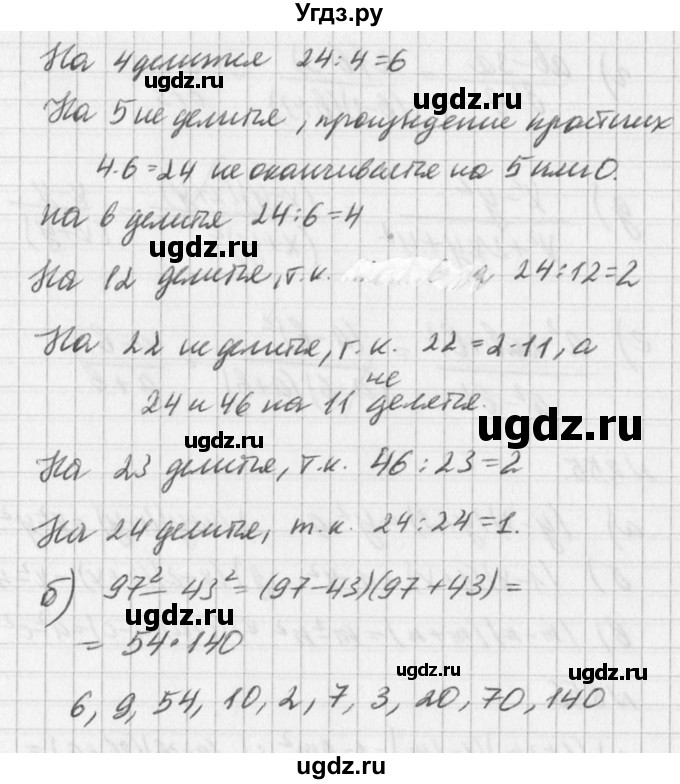 Угдз.ру
На 4 делится 24:4=6
ugdz.ru
ugdz.ru
На 5 не делится, произведение простых
4·6=24 не оканчивается на 5 или 0.
ugdz.ru
на 6 делится 24:6=4
ugdz.ru
На 12 делится, т.к. 24:12=2
На 22 не делится, т.к. 22=2·11, а
24 и 46 на 11 не делятся.
ugdz.ru
ugdz.ru
На 23 делится, т.к. 46:23=2
На 24 делится, т.к. 24:24=1.
ugdz.ru
б) 97²-43²=(97-43)(97+43)=
ugdz.ru
=54·140
ugdz.ru
ugdz.ru
6, 9, 54, 10, 2, 7, 3, 20, 70, 140
ugdz.ru